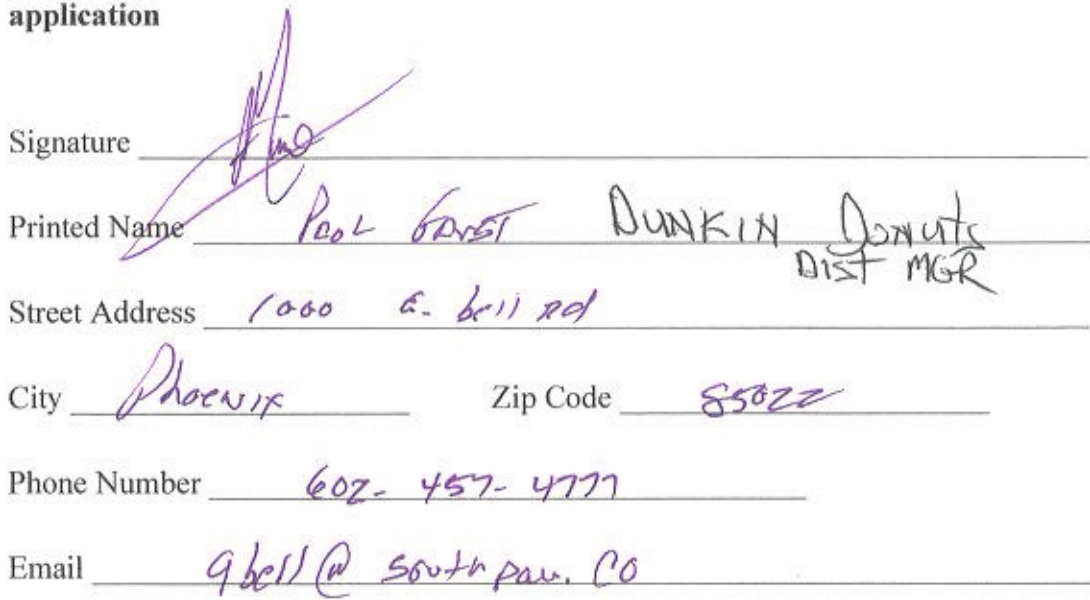 application
Signature
Printed Name DUNKIN DONUTS
DIST MGR
Street Address 1000 E. bell Rd
City Phoenix Zip Code 85022
Phone Number 602- 457- 4777
Email 9bell@southpaw.CO